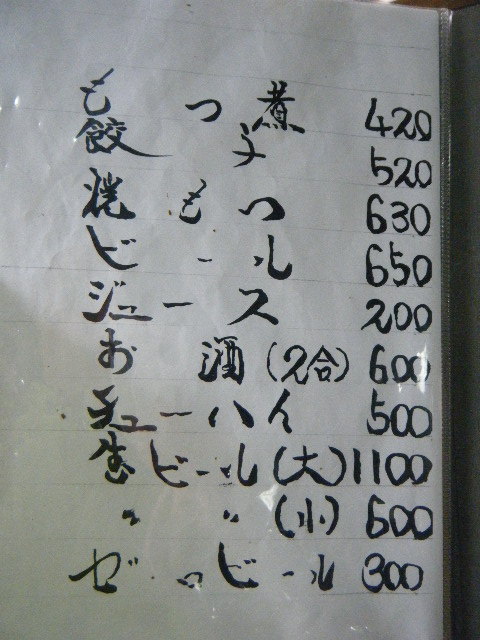 もつ煮 420
餃子 520
焼もつ 630
ビール 650
ジュース 200
お酒(2合) 600
チューハイ 500
生ビール(大) 1100
〃 〃 (小) 600
ゼロビール 300